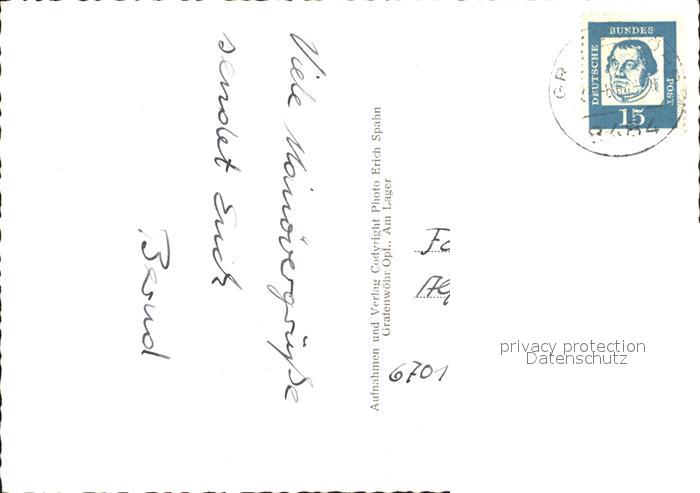 Viele Manövergrüße
sendet Euch
Bernd
Aufnahmen und Verlag Codyright Photo Erich Spahn
Grafenwöhr Opf., Am Lager
DEUTSCHE
BUNDES
POST
15
GR
6701
privacy protection
Datenschutz